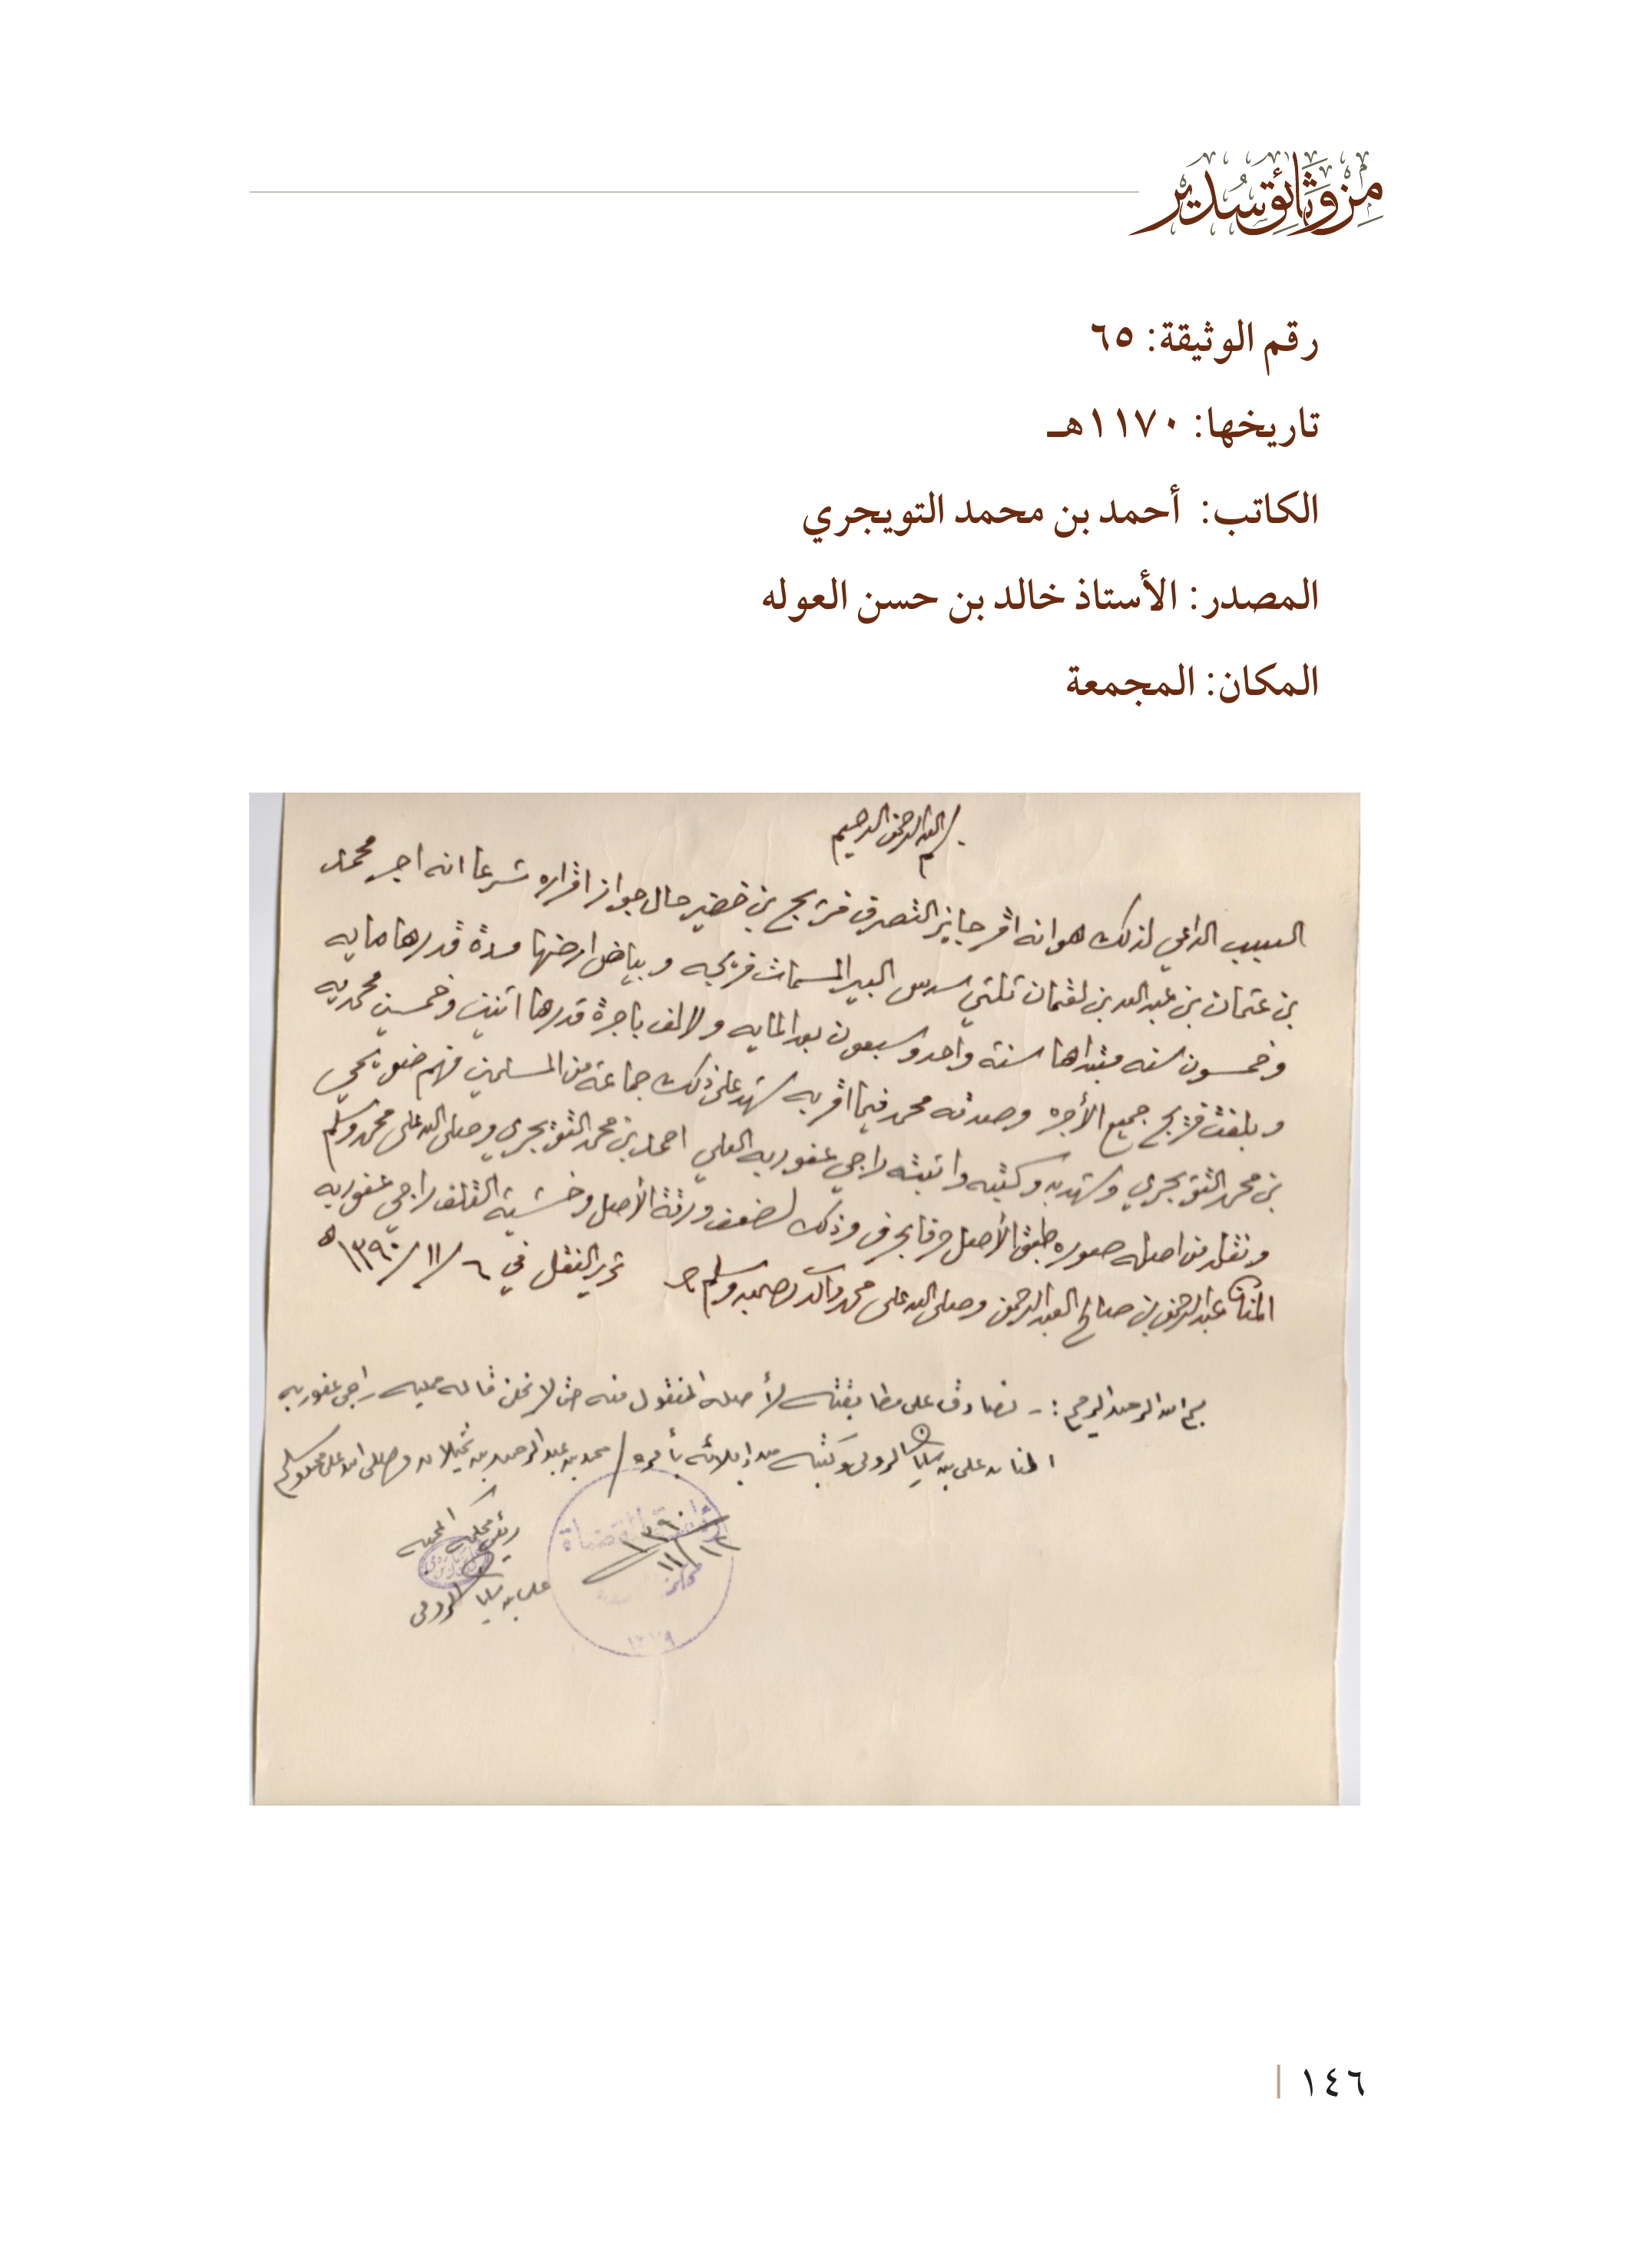 من وثائق سدير
رقم الوثيقة: ٦٥
تاريخها: ١١٧٠هـ
الكاتب: أحمد بن محمد التويجري
المصدر: الأستاذ خالد بن حسن العوله
المكان: المجمعة
بسم الله الرحمن الرحيم
السبب الداعي لذلك هو انه اقر جايز التصرف فريح بن خضير حال جواز اقراره شرعا انه اجر محمد
بن عثمان بن عبدالله بن لقمان ثلثي سدس البير المسمات فريحه وبياض ارضها مدة قدرها مايه
وخمسون سنه مبتداها سنة واحد وسبعون بعد المايه والالف باجرة قدرها اثنين وخمسين محمديه
وبلغت فريح جميع الأجره وصدقه محمد فيما اقر به شهد على ذلك جماعة من المسلمين منهم ضويحي
بن محمد التويجري وشهد به وكتبه واثبته راجي عفو ربه العلي احمد بن محمد التويجري وصلى الله على محمد وسلم
ونقله من اصله صوره طبق الأصل حرفا بحرف وذلك لضعف ورقة الأصل وخشية التلف راجي عفو ربه
المنان عبدالرحمن بن صالح العبدالرحمن وصلى الله على محمد وآله وصحبه وسلم حرر النقل في ٦/١١/١٣٩٠ه
بسم الله الرحمن الرحيم :- نصادق على مطابقته لأصله المنقول منه حتى لا نخفى قاله ممليه راجي عفو ربه
المنان علي بن سليمان الرومي وكتبه من إملائه بأمره / محمد بن عبدالرحمن بن ثميلان وصلى الله على محمد وسلم
رئيس محكمة المجمعة
علي بن سليمان الرومي
رئاسة القضاة
١٣٩٠
١١/١٢
١٤٦